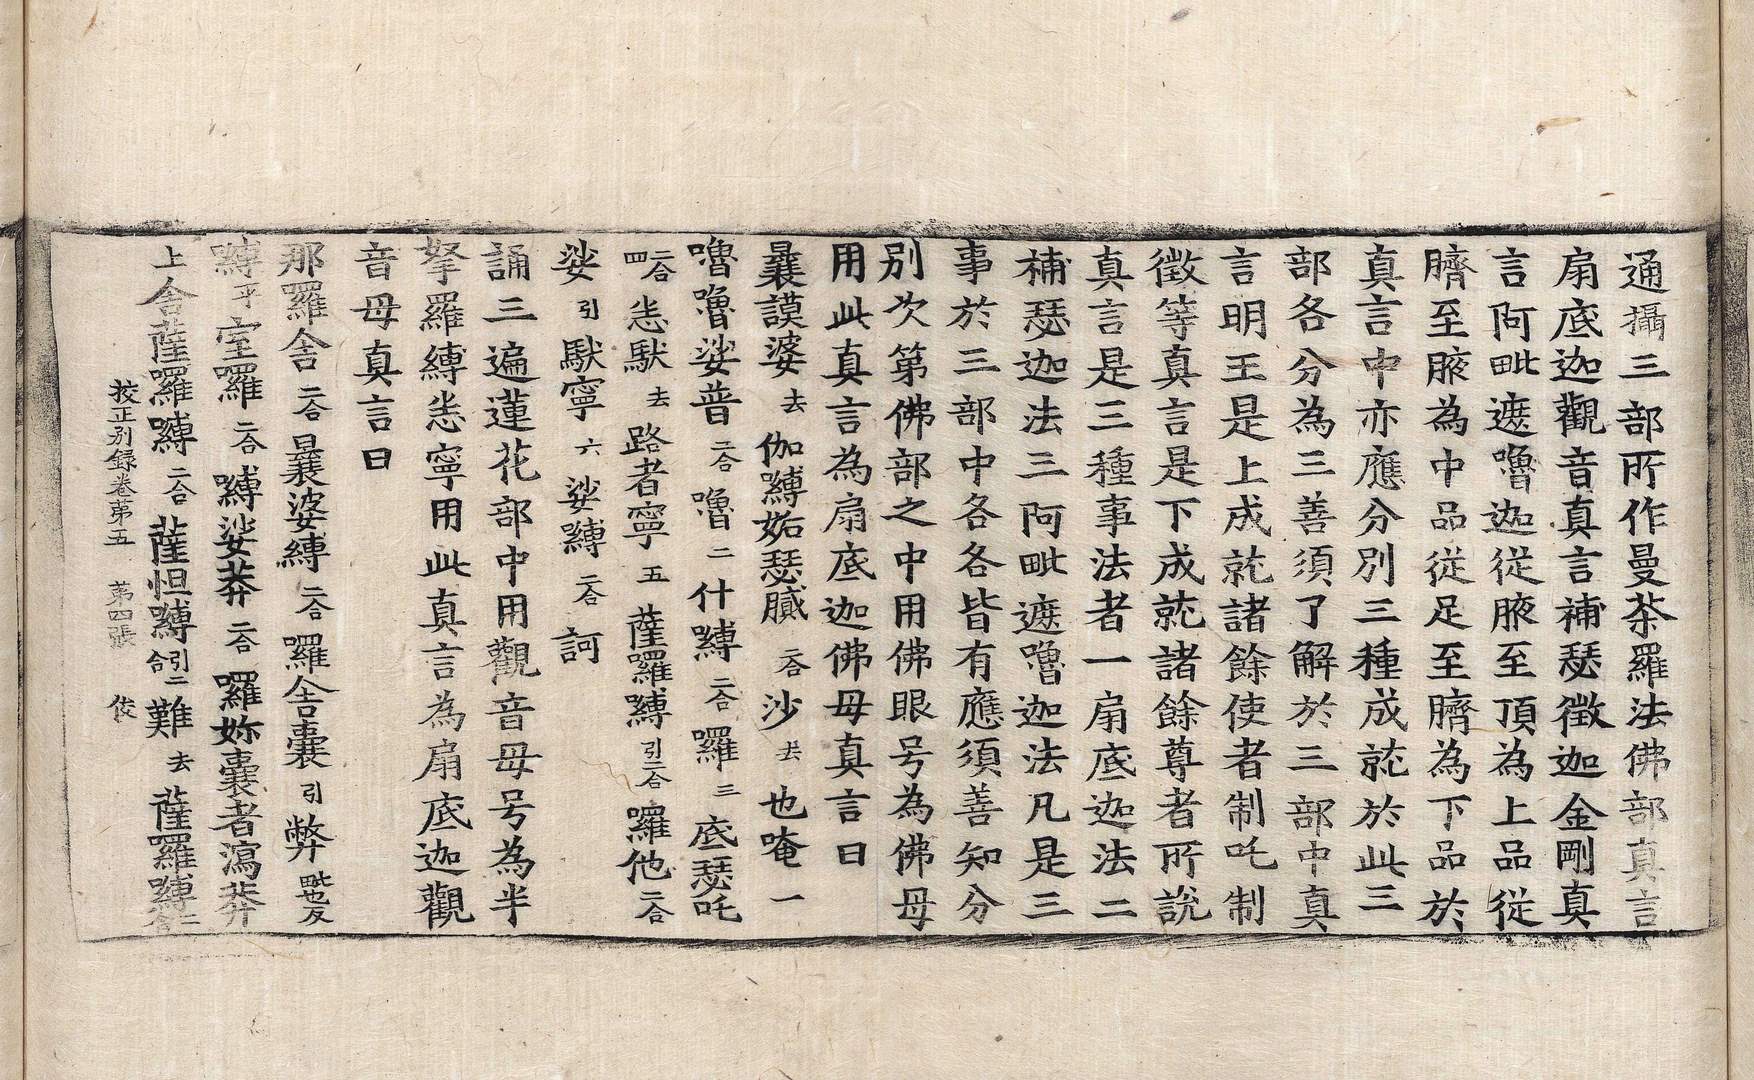 通攝三部所作曼荼羅法佛部真言
扇底迦觀音真言補瑟徵迦金剛真
言阿毗遮嚕迦從腋至頂為上品從
臍至腋為中品從足至臍為下品於
真言中亦應分別三種成就於此三
部各分為三善須了解於三部中真
言明王是上成就諸餘使者制吒制
徵等真言是下成就諸餘尊者所說
真言是三種事法者一扇底迦法二
補瑟迦法三阿毗遮嚕迦法凡是三
事於三部中各各皆有應須善知分
別次第佛部之中用佛眼号為佛母
用此真言為扇底迦佛母真言曰
曩謨婆去伽嚩妬瑟膩二合沙去也唵一
嚕嚕娑普二合嚕二什嚩二合囉三底瑟吒
二合四恙馱去路者寧五薩囉嚩引二合囉他二合
娑引馱寧六娑嚩二合訶
誦三遍蓮花部中用觀音母号為半
拏羅嚩恙寧用此真言為扇底迦觀
音母真言曰
那羅舍二合曩婆嚩二合囉舍囊引弊毗也反
嚩乎室囉二合嚩娑莽二合囉妳囊者瀉莽
上舍薩囉嚩二合薩怛嚩引二合難去薩囉嚩二合
挍正別錄卷苐五 苐四張 俊